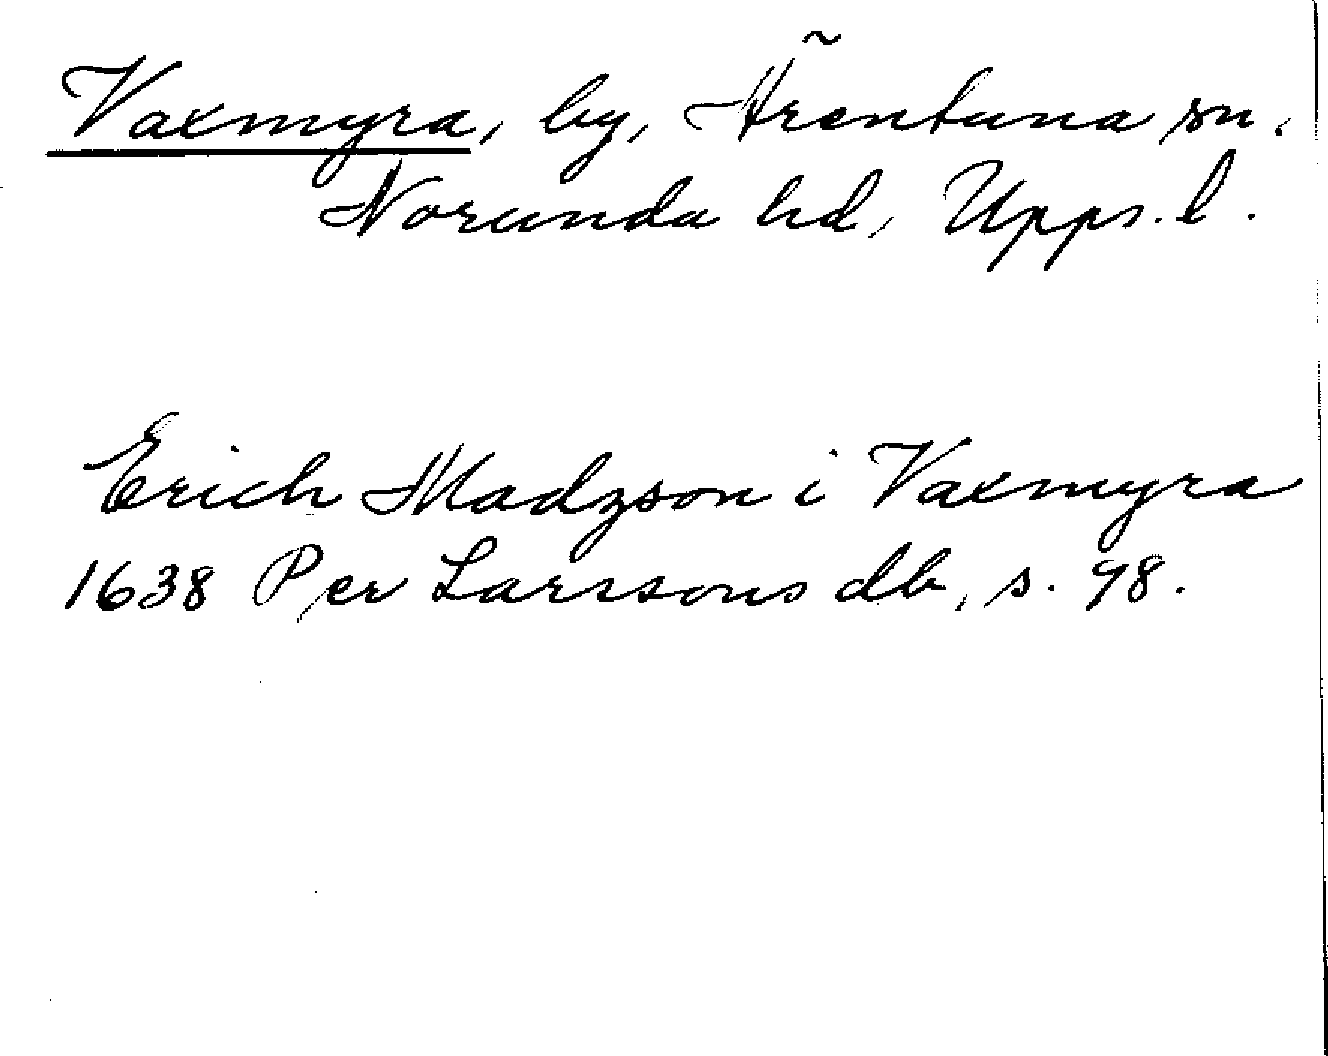 Vaxmyra, by, Ärentuna sn.
Norunda hd, Upps. l.
Erich Madzson i Vaxmyra
1638 Per Larssons db, s. 98.